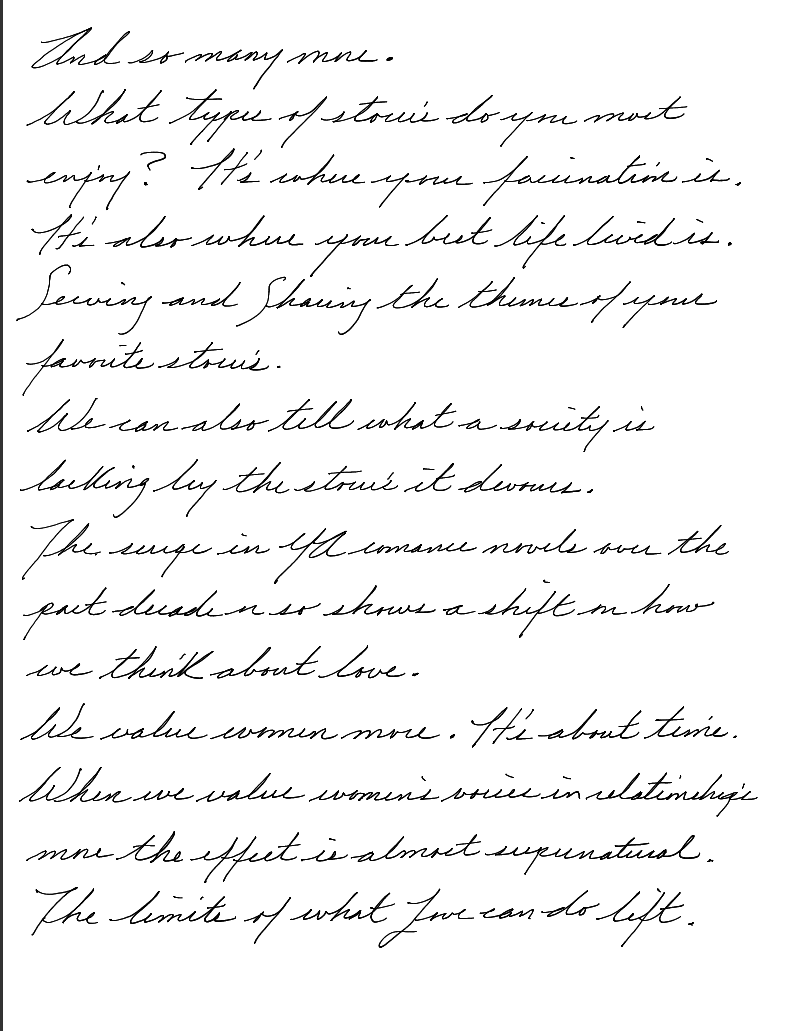 And so many more.
What types of stories do you most
enjoy? It's where your fascination is.
It's also where your best life lived is.
Sewing and Sharing the themes of your
favorite stories.
We can also tell what a society is
lacking by the stories it devours.
The surge in YA romance novels over the
past decade or so shows a shift on how
we think about love.
We value women more. It's about time.
When we value women's voices in relationships
more the effect is almost supernatural.
The limits of what Love can do lift.